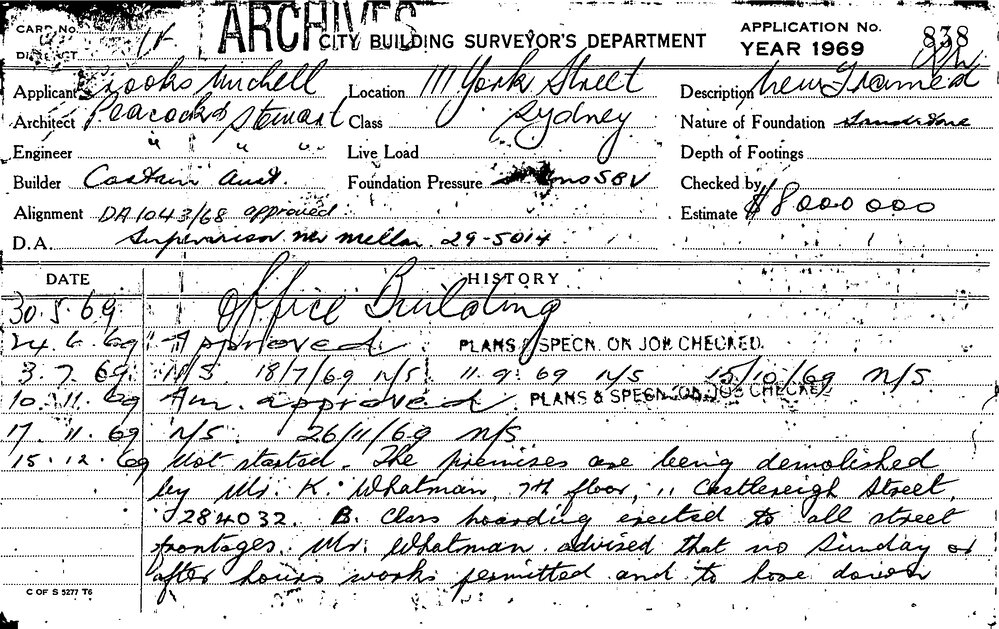 CARD No.
DISTRICT
ARCHIVES
CITY BUILDING SURVEYOR'S DEPARTMENT
APPLICATION No. 838
YEAR 1969
Applicant Brooks Mitchell Location 111 York Street Description new Framed
Architect Peacocke & Stewart Class Sydney Nature of Foundation Sandstone
Engineer " " " Live Load Depth of Footings
Builder Costain Aust. Foundation Pressure Checked by
Alignment DA 1043/68 approved Estimate $8000 000
D.A. Supervisor Mr Mellor 29-5014
DATE HISTORY
30.5.69 Office Building
24.6.69 Approved PLANS & SPECN. ON JOB CHECKED.
3.7.69 N/S 18/7/69 N/S 11.9.69 N/S 15/10/69 N/S
10.11.69 Am. approved PLANS & SPECN. ON JOB CHECKED
17.11.69 N/S 26/11/69 N/S
15.12.69 Not started. The premises are being demolished
by Mr. K. Whatman, 7th floor, 11 Castlereigh Street,
284032. B. Class hoarding erected to all street
frontages. Mr. Whatman advised that no Sunday or
after hours works permitted and to hose down
C OF S 5277 T6